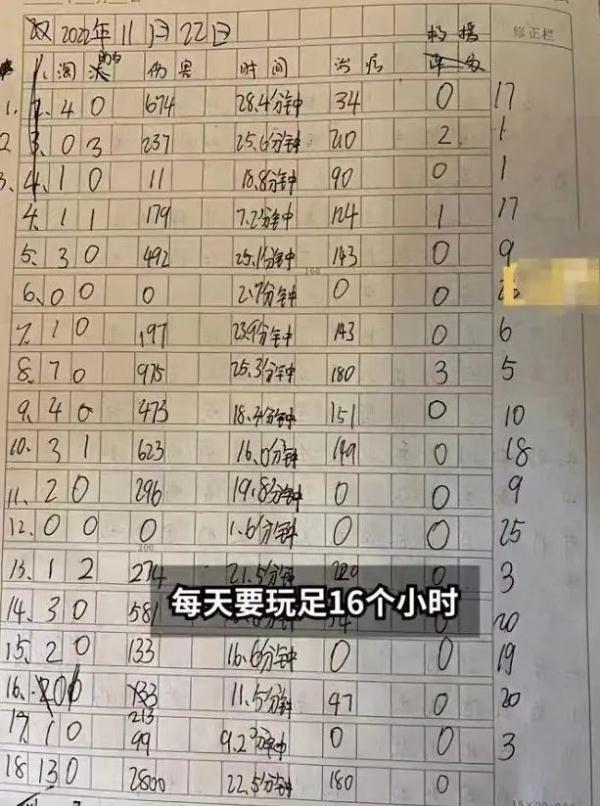 双 2022年 11月 22日 修正栏
淘汰 助攻 伤害 时间 治疗 救援
1. 4 0 674 28.4分钟 34 0 17
2. 0 3 237 25.6分钟 210 2 1
3. 1 0 11 18.8分钟 90 0 1
4. 1 1 179 7.2分钟 124 1 17
5. 3 0 492 25.1分钟 143 0 9
100
6. 0 0 0 2.7分钟 0 0
7. 1 0 197 23.9分钟 143 0 6
8. 7 0 975 25.3分钟 180 3 5
9. 4 0 473 18.4分钟 151 0 10
10. 3 1 623 16.0分钟 149 0 18
11. 2 0 296 19.8分钟 0 0 9
12. 0 0 0 1.6分钟 0 0 25
200
13. 1 2 274 21.5分钟 220 0 3
每天要玩足16个小时
14. 3 0 581 0 20
15. 2 0 133 16.6分钟 0 0 19
16. 213 11.5分钟 97 0 20
17. 1 0 99 9.2分钟 0 0 3
18. 13 0 2800 22.5分钟 180 0